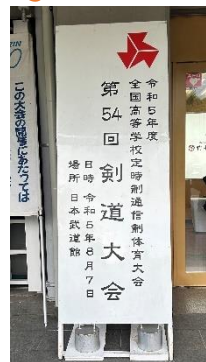 令和5年度
全国高等学校定時制通信制体育大会
第54回剣道大会
日時 令和5年8月7日
場所 日本武道館
この大会の開催にあたっては